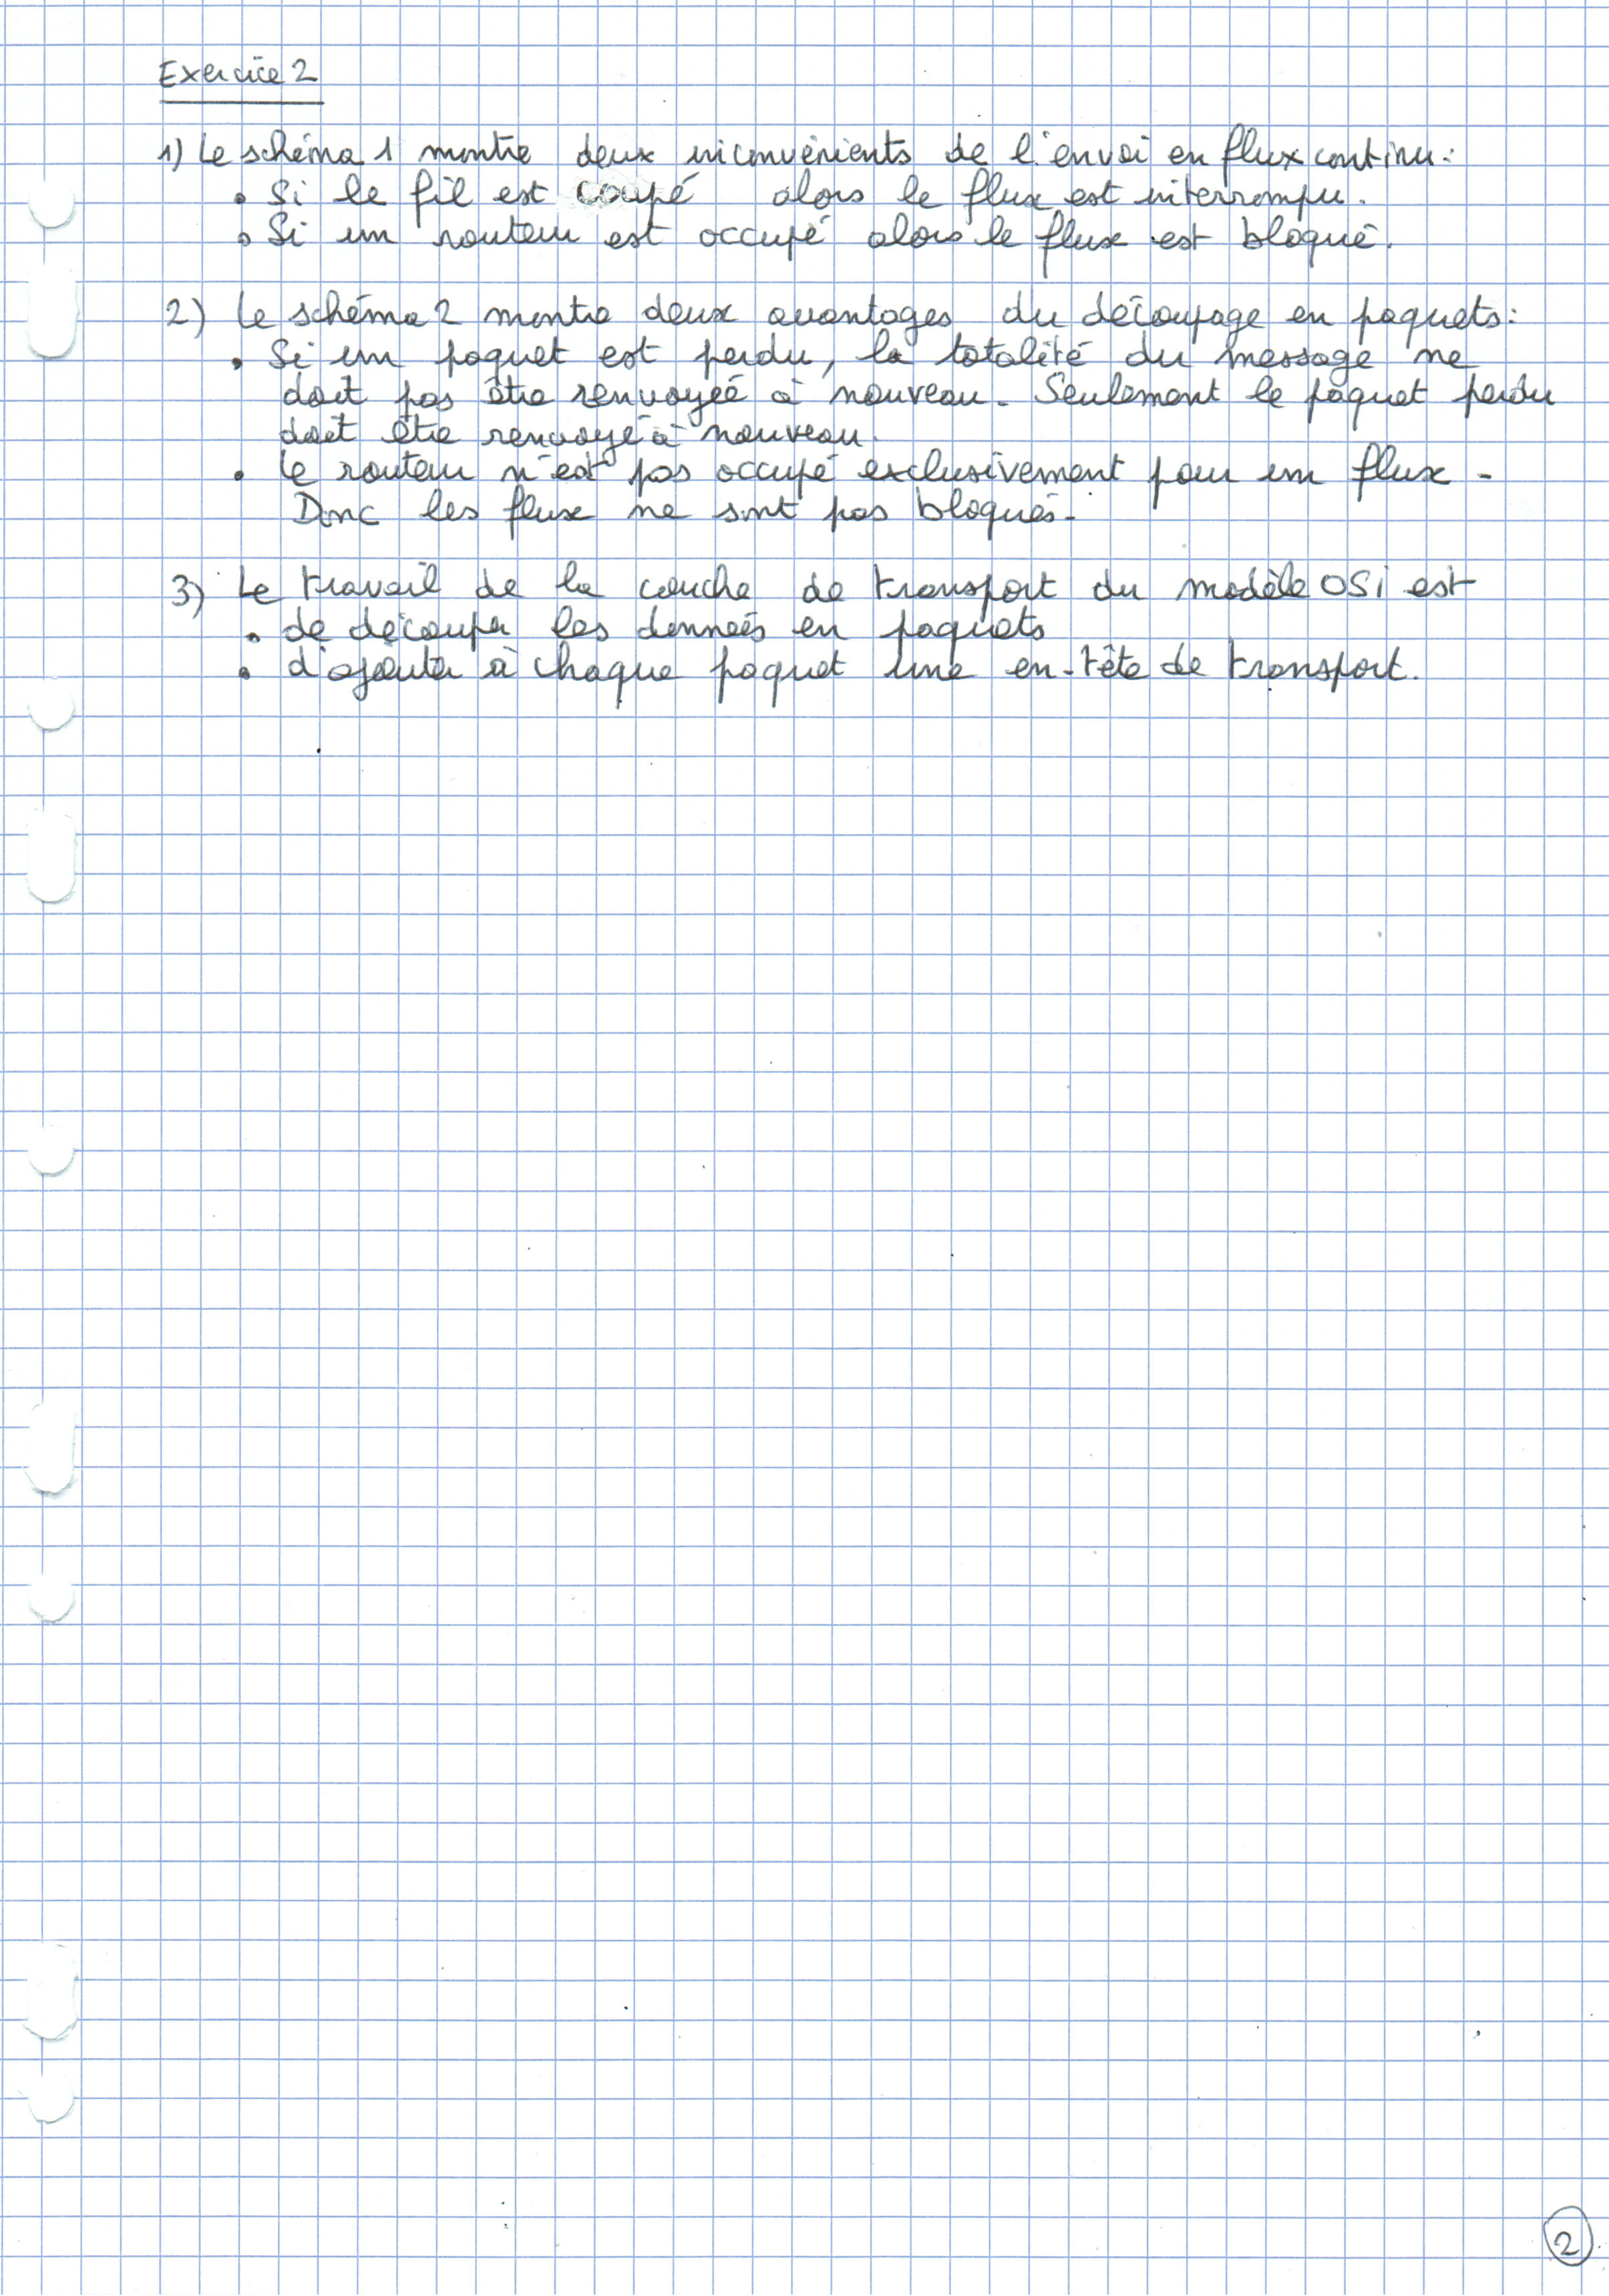 Exercice 2
1) Le schéma 1 montre deux inconvénients de l'envoi en flux continu:
• Si le fil est coupé alors le flux est interrompu.
• Si un routeur est occupé alors le flux est bloqué.
2) Le schéma 2 montre deux avantages du découpage en paquets:
• Si un paquet est perdu, la totalité du message ne
doit pas être renvoyéé à nouveau. Seulement le paquet perdu
doit être renvoyé à nouveau.
• Le routeur n'est pas occupé exclusivement pour un flux.
Donc les flux ne sont pas bloqués.
3) Le travail de la couche de transport du modèle OSi est
• de découper les données en paquets
• d'ajouter à chaque paquet une en-tête de transport.
2